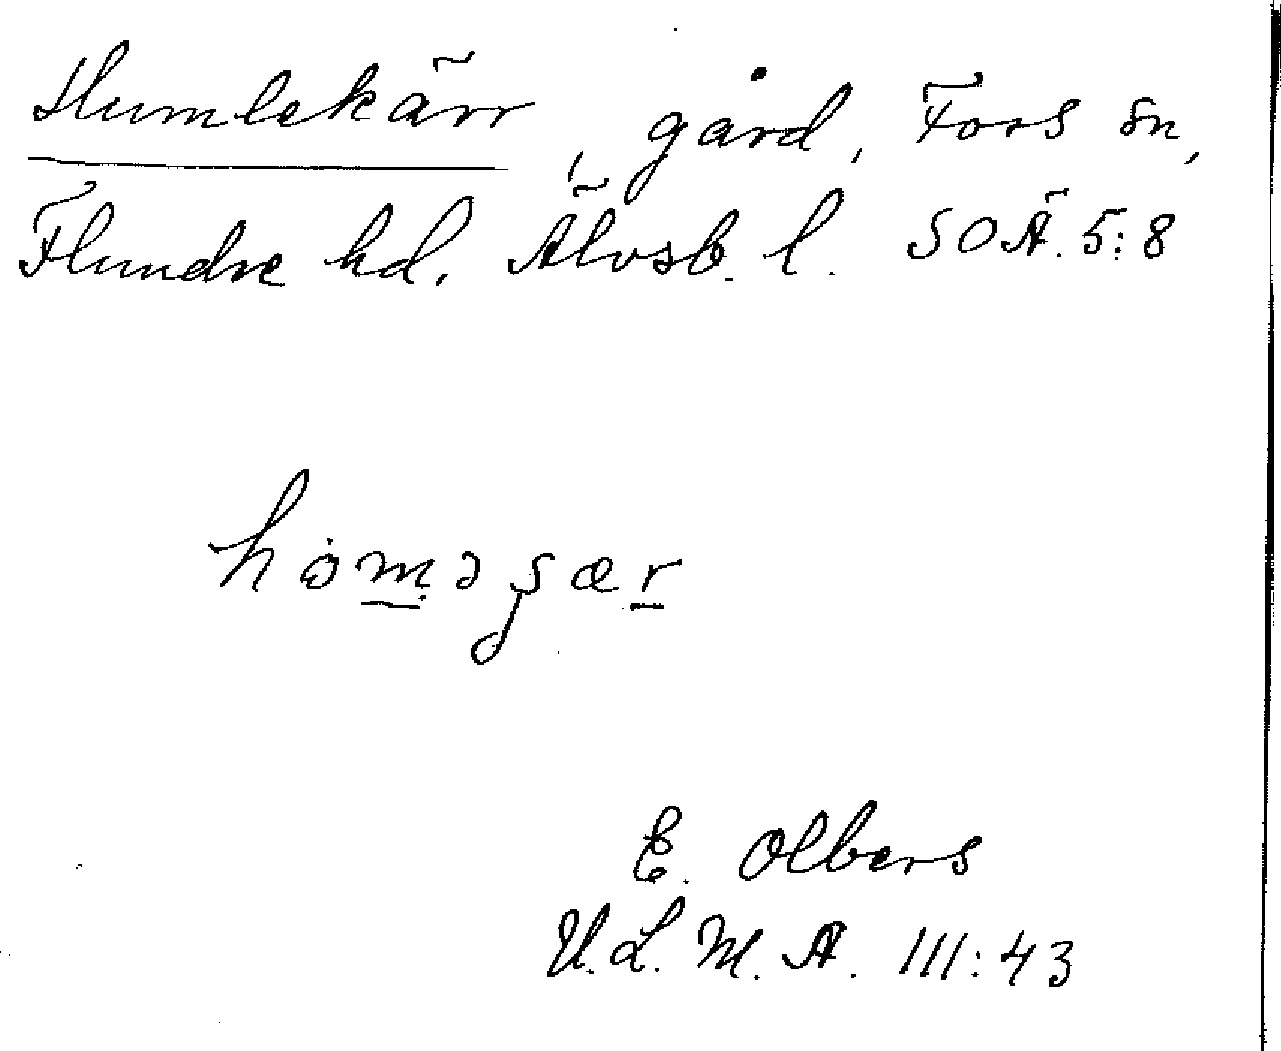 Humlekärr, gård, Fors sn,
Flundre hd. Älvsb. l. SOÄ. 5:8
E. Olbers
U.L.M.A. III:43